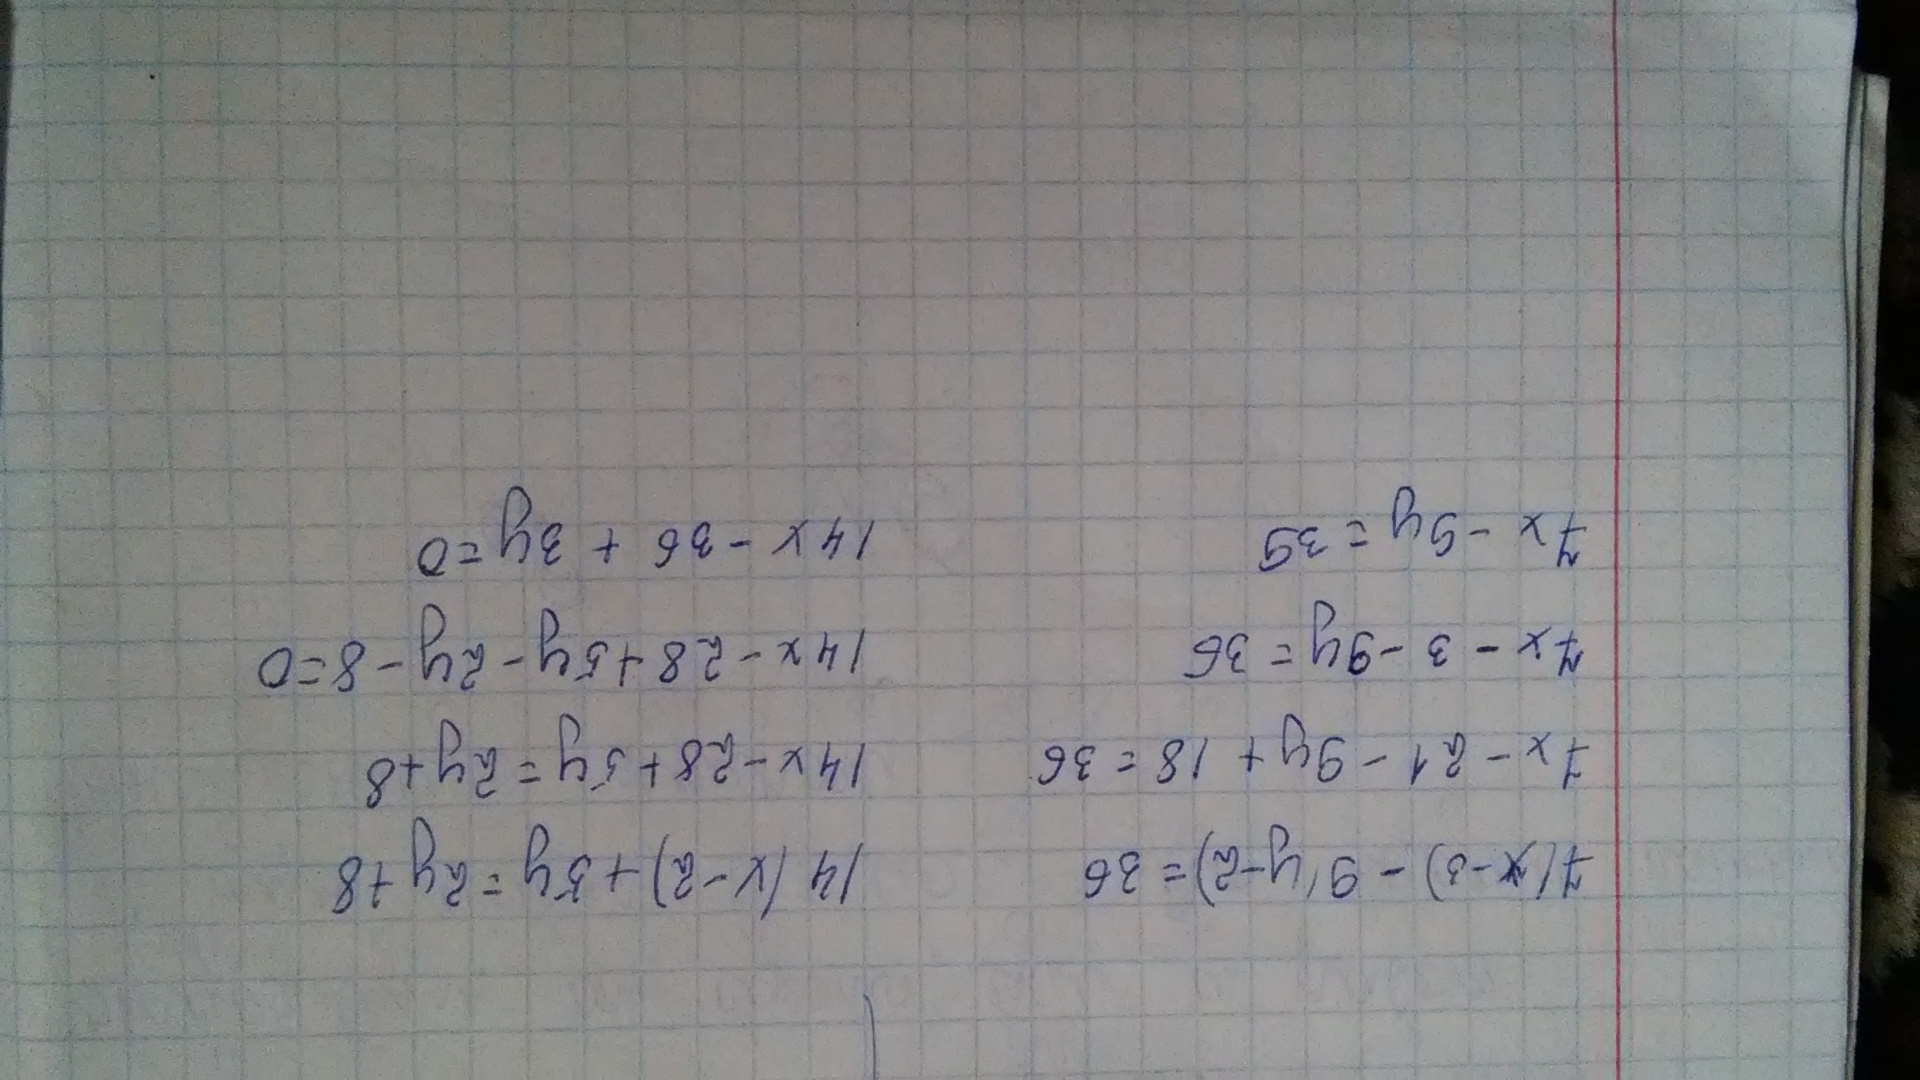 7(x-3) - 9(y-2) = 36
7x - 21 - 9y + 18 = 36
7x - 3 - 9y = 36
7x - 9y = 39
14(x-2)+5y = 2y+8
14x-28+5y = 2y+8
14x-28+5y-2y-8=0
14x-36+3y=0